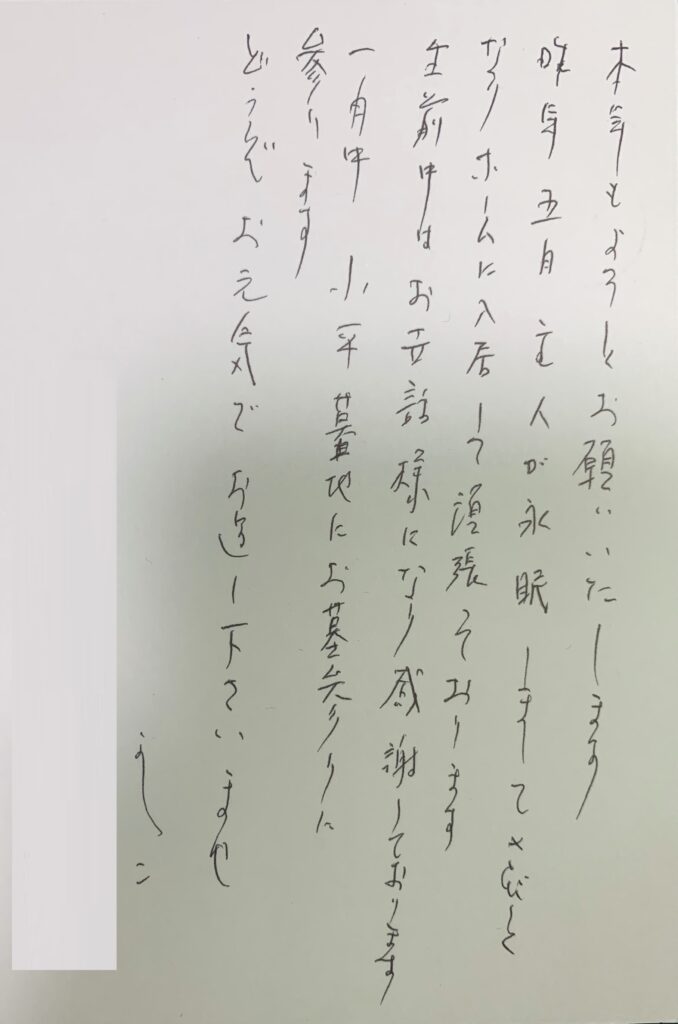 本年もよろしくお願いいたします
昨年五月主人が永眠しましてさびしく
なりホームに入居して頑張っております
生前中はお世話様になり感謝しております
一月中 小平墓地にお墓参りに
参ります
どうぞお元気でお過し下さいませ